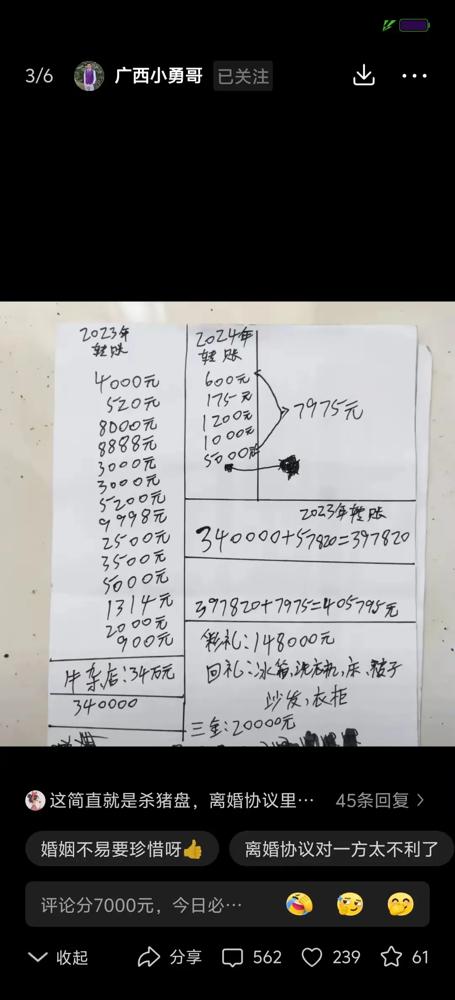 3/6
广西小勇哥
已关注
2023年
转账
4000元
520元
8000元
8888元
3000元
3000元
5200元
9998元
2500元
3500元
5000元
1314元
2000元
900元
牛杂店:34万元
340000
2024年
转账
600元
175元
1200元
1000元
5000元
7975元
2023年转账
340000+57820=397820
397820+7975=405795元
彩礼:148000元
回礼:冰箱,洗衣机,床、被子
沙发、衣柜
三金:20000元
这简直就是杀猪盘，离婚协议里…
45条回复
婚姻不易要珍惜呀👍
离婚协议对一方太不利了
评论分7000元，今日必…
收起
分享
562
239
61